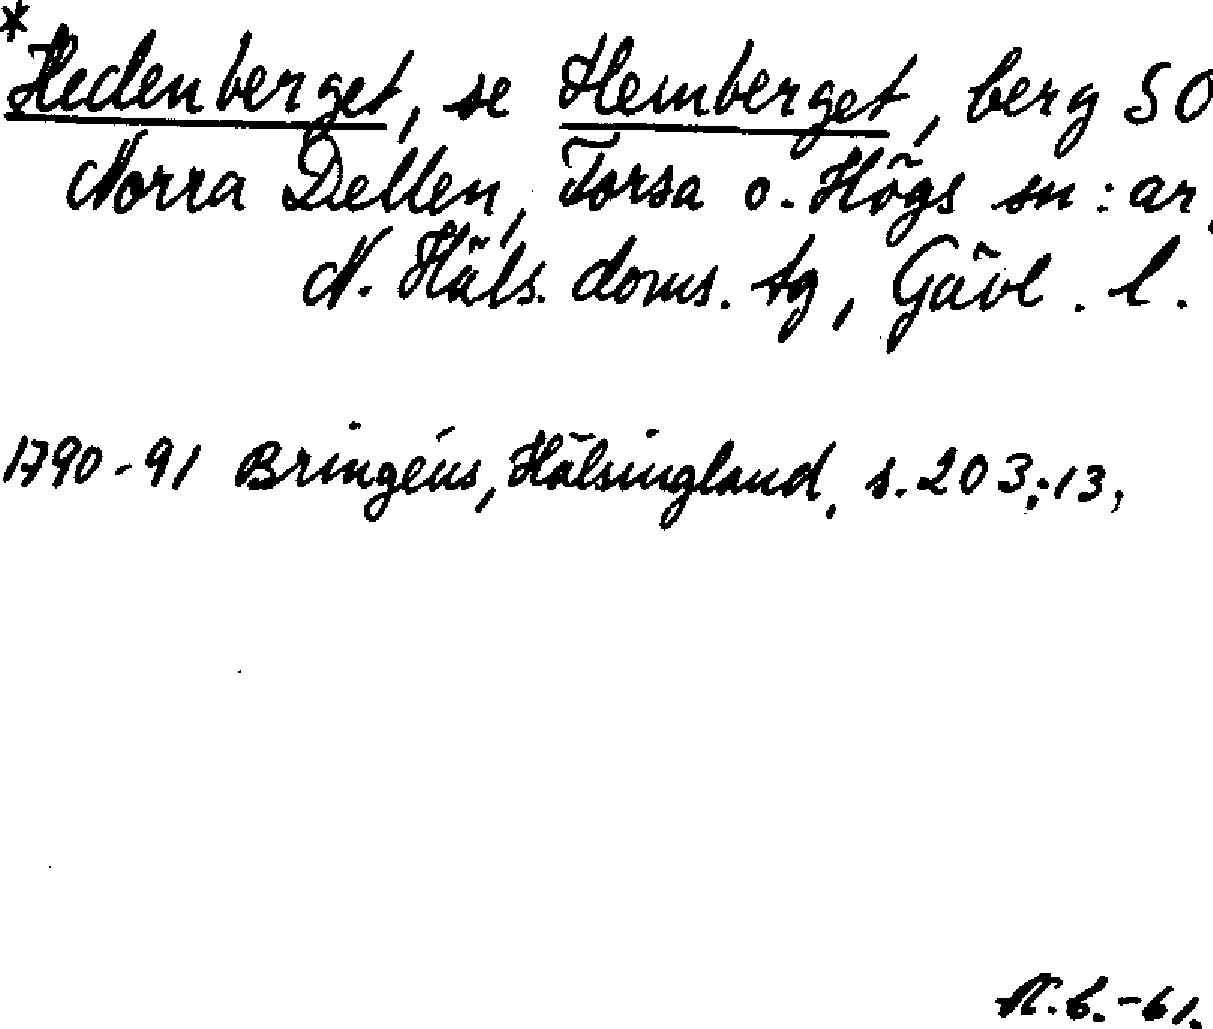 *Hedenberget, se Hemberget, berg SO
Norra Dellen, Forsa o. Högs sn:ar,
N. Häls. doms. tg, Gävl. l.
1790-91 Bringéus, Hälsingland, s. 203:13,
-61.